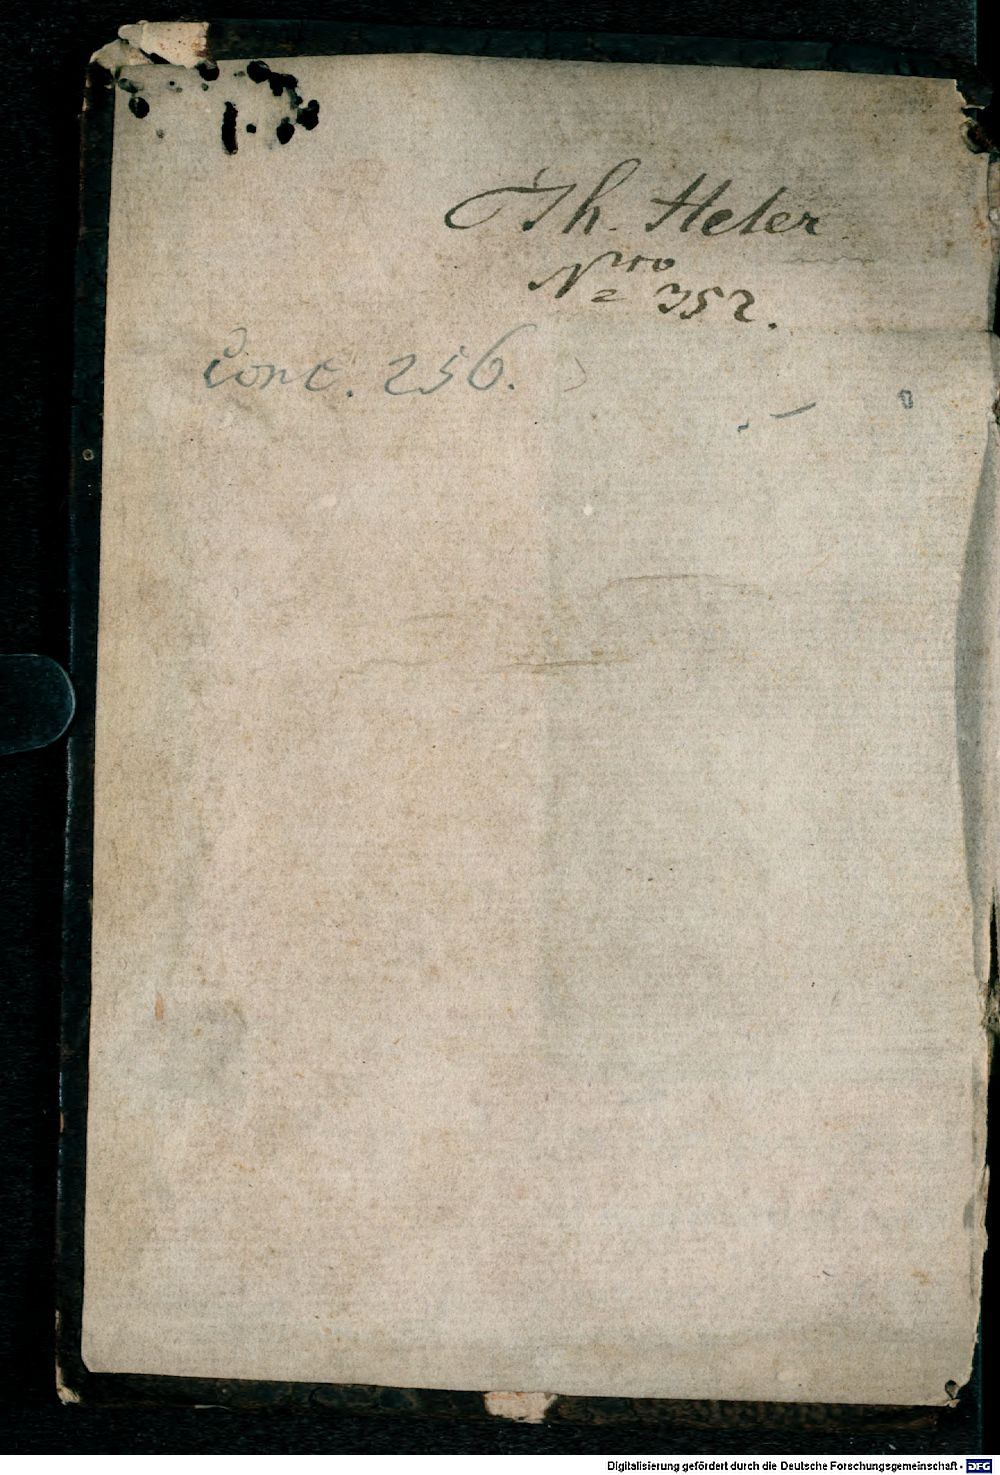 Th. Heter
Nro 352.
Conc. 256.
Digitalisierung gefördert durch die Deutsche Forschungsgemeinschaft - DFG